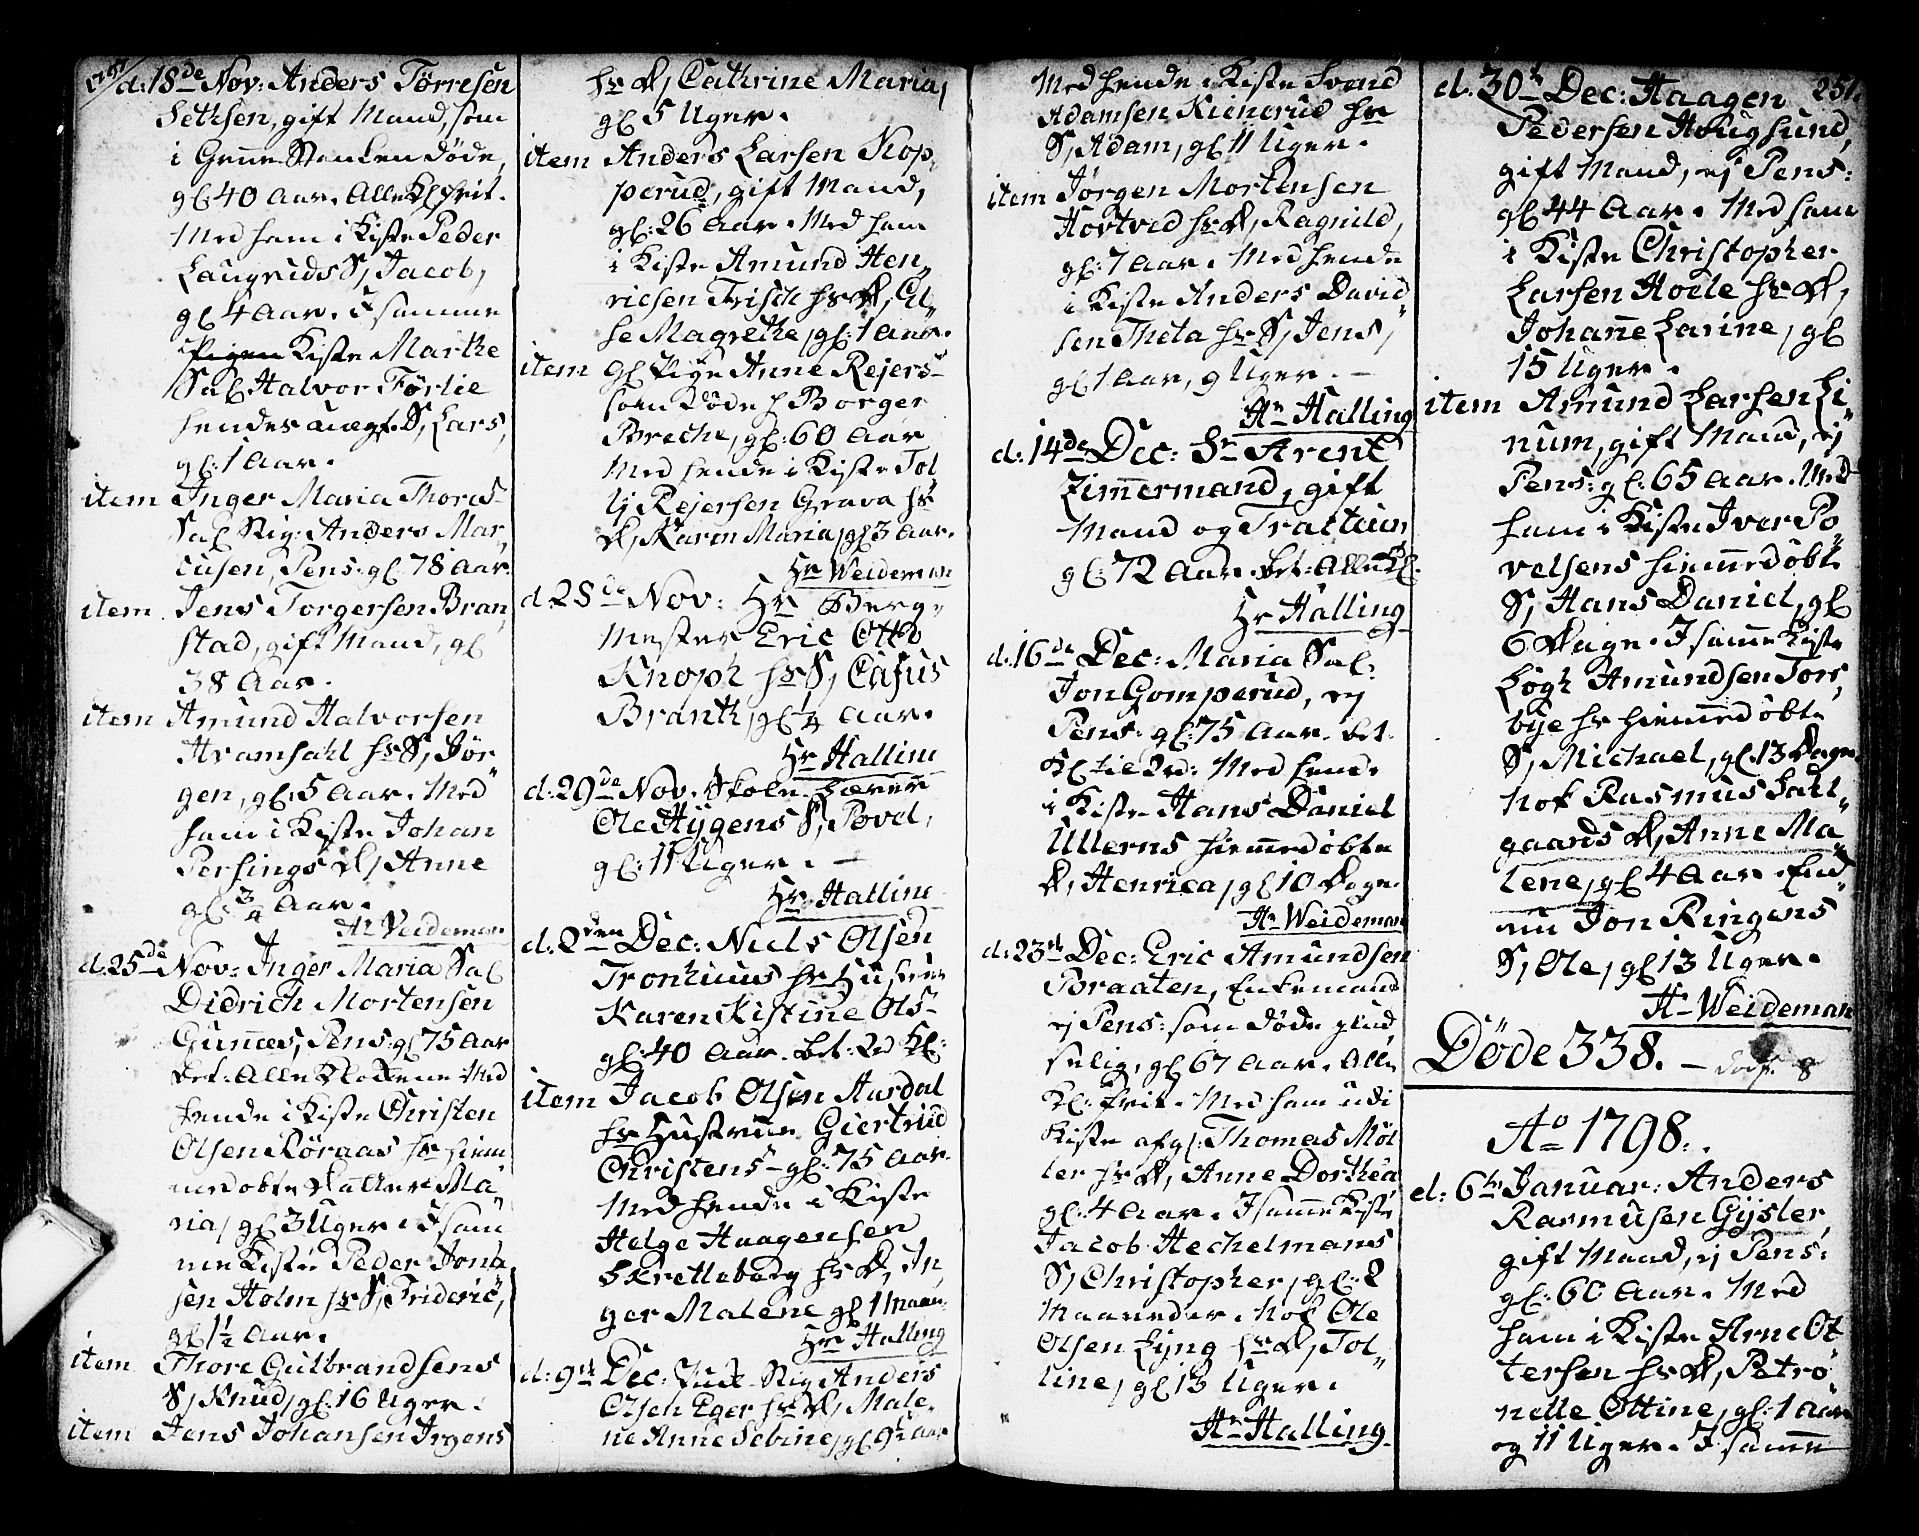 1797
d: 18de Nov: Anders Törresen
Sethsen, gift Mand, som
i Grue Stenken döde,
gl: 40 Aar. Alle Kl frit.
Med ham i Kiste Peder
Laugrids S, Jacob,
gl 4 Aar. I samme
Kiste Marthe
Sal Halvor Förlie
hendes uægt. S, Lars,
gl: 1 Aar.
item Inger Maria Thores-
Sal Rig: Anders Mar,
cusen, Pens: gl: 78 Aar.
item Jens Torgersen Bran,
stad, gift Mand, gl
38 Aar.
item Amund Halvorsen
Hvamsahl hs S, Jör„
gen, gl: 5 Aar. Med
ham i Kiste Johan
Persings D, Anne
gl: 3/4 Aar.
Hr Weideman
d: 25de Nov: Inger Maria Sal
Didrich Mortensen
Gunnes, Pens: gl 75 Aar
bet: Alle Klokkene Med
hende i Kiste Christen
Olsen Röraas hs hiem
medöbte Datter Ma„
ria, gl 3 Uger. I sam
me Kiste Peder Jona
sen Holm hs S, Frideric,
gl 1½ Aar.
item Thore Gulbrandsens
S, Knud, gl: 16 Uger.
item Jens Johansen Irgens
hs D, Cathrine Maria,
gl 5 Uger.
item Anders Larsen Kop„
perud, gift Mand,
gl: 26 Aar. Med ham
i Kiste Amund Hen„
ricsen Frisch hs D, El„
se Magrethe, gl: 1 Aar.
item gl Pige Anne Rejers-
som döde h Borger
Breche, gl: 60 Aar
Med hende i Kiste Tol
lj Rejersen Grava hs
D, Karen Maria, gl 3 Aar.
Hr Weideman
d 28de Nov: Hr Berg„
mester Eric Otto
Knoph hs S, Casus
Branth, gl ¼ Aar.
Hr Halling
d: 29de Nov. Skole-Lærer
Ole Hygens S, Povel,
gl: 11 Uger. —
Hr Halling
d: 2den Dec: Niels Olsen
Tronhuus hs Hustrue
Karen Kistine Ols-
gl: 40 Aar. bet: 2d Kl:
item Jacob Olsen Aasdal
hs Hustrue Giertrud
Christens- gl: 75 Aar.
Med hende i Kiste
Helge Haagensen
Skretteberg hs D, In„
ger Malene gl 1 Maan:
Hr Halling
d: 9de Dec: Rig Anders
Olsen Eger hs D, Male„
ne Anne Sebine, gl 9½ Aar
Med hende i Kiste Svend
Adamsen Kienerud hs
S, Adam, gl 11 Uger.
item Jörgen Mortensen
Hovtved hs D, Ragnild,
gl: 7 Aar. Med hende
i Kiste Anders David„
sen Theta hs S, Jens,
gl 1 Aar, 9 Uger. —
Hr Halling
d: 14de Dec: Sr Arent
Zimmermand, gift
Mand og Tracteur
gl: 72 Aar. bet: Alle Kl.
Hr Halling
d: 16de Dec: Maria Sal:
Jon Gomperud, ej
Pens: gl: 75 Aar. bet.
Kl: tie 2d: Med hende
i Kiste Hans Daniel
Ullerns hiemmedöbte
D, Henrica, gl 10 Dage.
Hr Weideman
d: 23de Dec: Eric Amundsen
Braaten, Enkemand
ej Pens: som döde plud„
selig, gl 67 Aar. Alle
Kl: frit. Med ham udi
Kiste afgl: Thomas Möl
ler hs D, Anne Dorthea
gl: 4 Aar. I samme Kiste
Jacob Hechelmans
S, Christopher, gl: 2
Maaneder. Nok Ole
Olsen Lyng hs D, Tol„
line, gl 13 Uger.
Hr Halling
251.
d. 30te Dec: Haagen
Pedersen Hougsund,
gift Mand, ej Pens:
gl 44 Aar. Med ham
i Kiste Christopher
Larsen Hoele hs D,
Johanne Larine, gl
15 Uger.
item Amund Larsen Li„
num, gift Mand, ej
Pens: gl: 65 Aar. Med
ham i Kiste Iver Po„
velsens hiemmedöbte
S, Hans Daniel, gl
6 Dage. I samme Kiste
Logh Amundsen Tors„
bye hs hiemmedöbte
S, Michael, gl: 13 Dage
Nok Rasmus Dahl„
gaards D, Anne Ma„
lene, gl 4 Aar. End„
nu Jon Ringens
S, Ole, gl 13 Uger.
Hr Weideman
Döde 338. — dödf: 8
Ao 1798.
d: 6te Januar: Anders
Rasmusen Gysler,
gift Mand, ej Pens:
gl: 60 Aar. Med
ham i Kiste Arne Ot
tersen hs D, Petro„
nelle Ottine, gl: 1 Aar
og 11 Uger. I samme